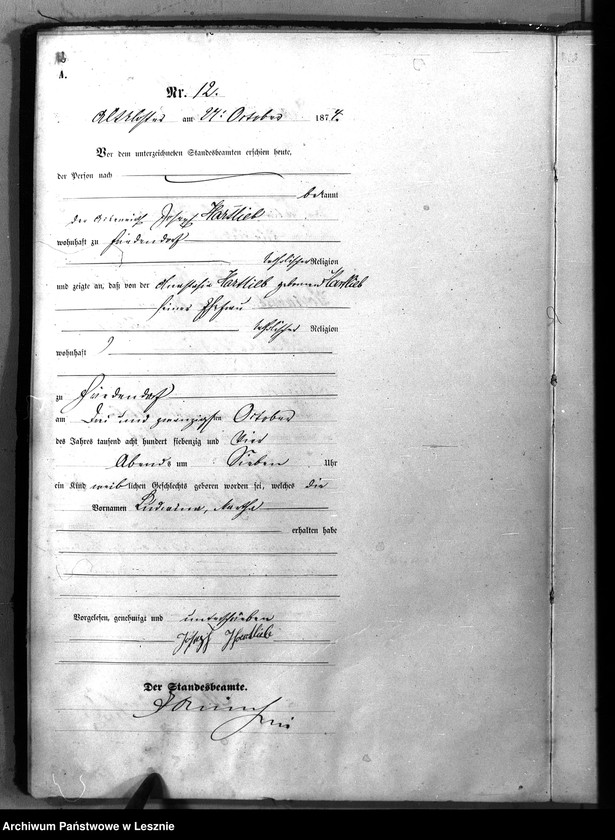 A.
Nr. 12.
Altkloster am 24. October 1874.
Vor dem unterzeichneten Standesbeamten erschien heute,
der Person nach
bekannt
der Joseph Hartlieb
wohnhaft zu Friedendorf
katholischer Religion
und zeigte an, daß von der Anastasia Hartlieb geborenen Hartlieb
seiner Ehefrau
katholischer Religion
wohnhaft
zu Friedendorf
am Drei und zwanzigsten October
des Jahres tausend acht hundert siebenzig und Vier
Abends um Sieben Uhr
ein Kind weiblichen Geschlechts geboren worden sei, welches die
Vornamen Ludwina, Martha
erhalten habe
Vorgelesen, genehmigt und unterschrieben
Joseph Hartlieb
Der Standesbeamte.
Archiwum Państwowe w Lesznie